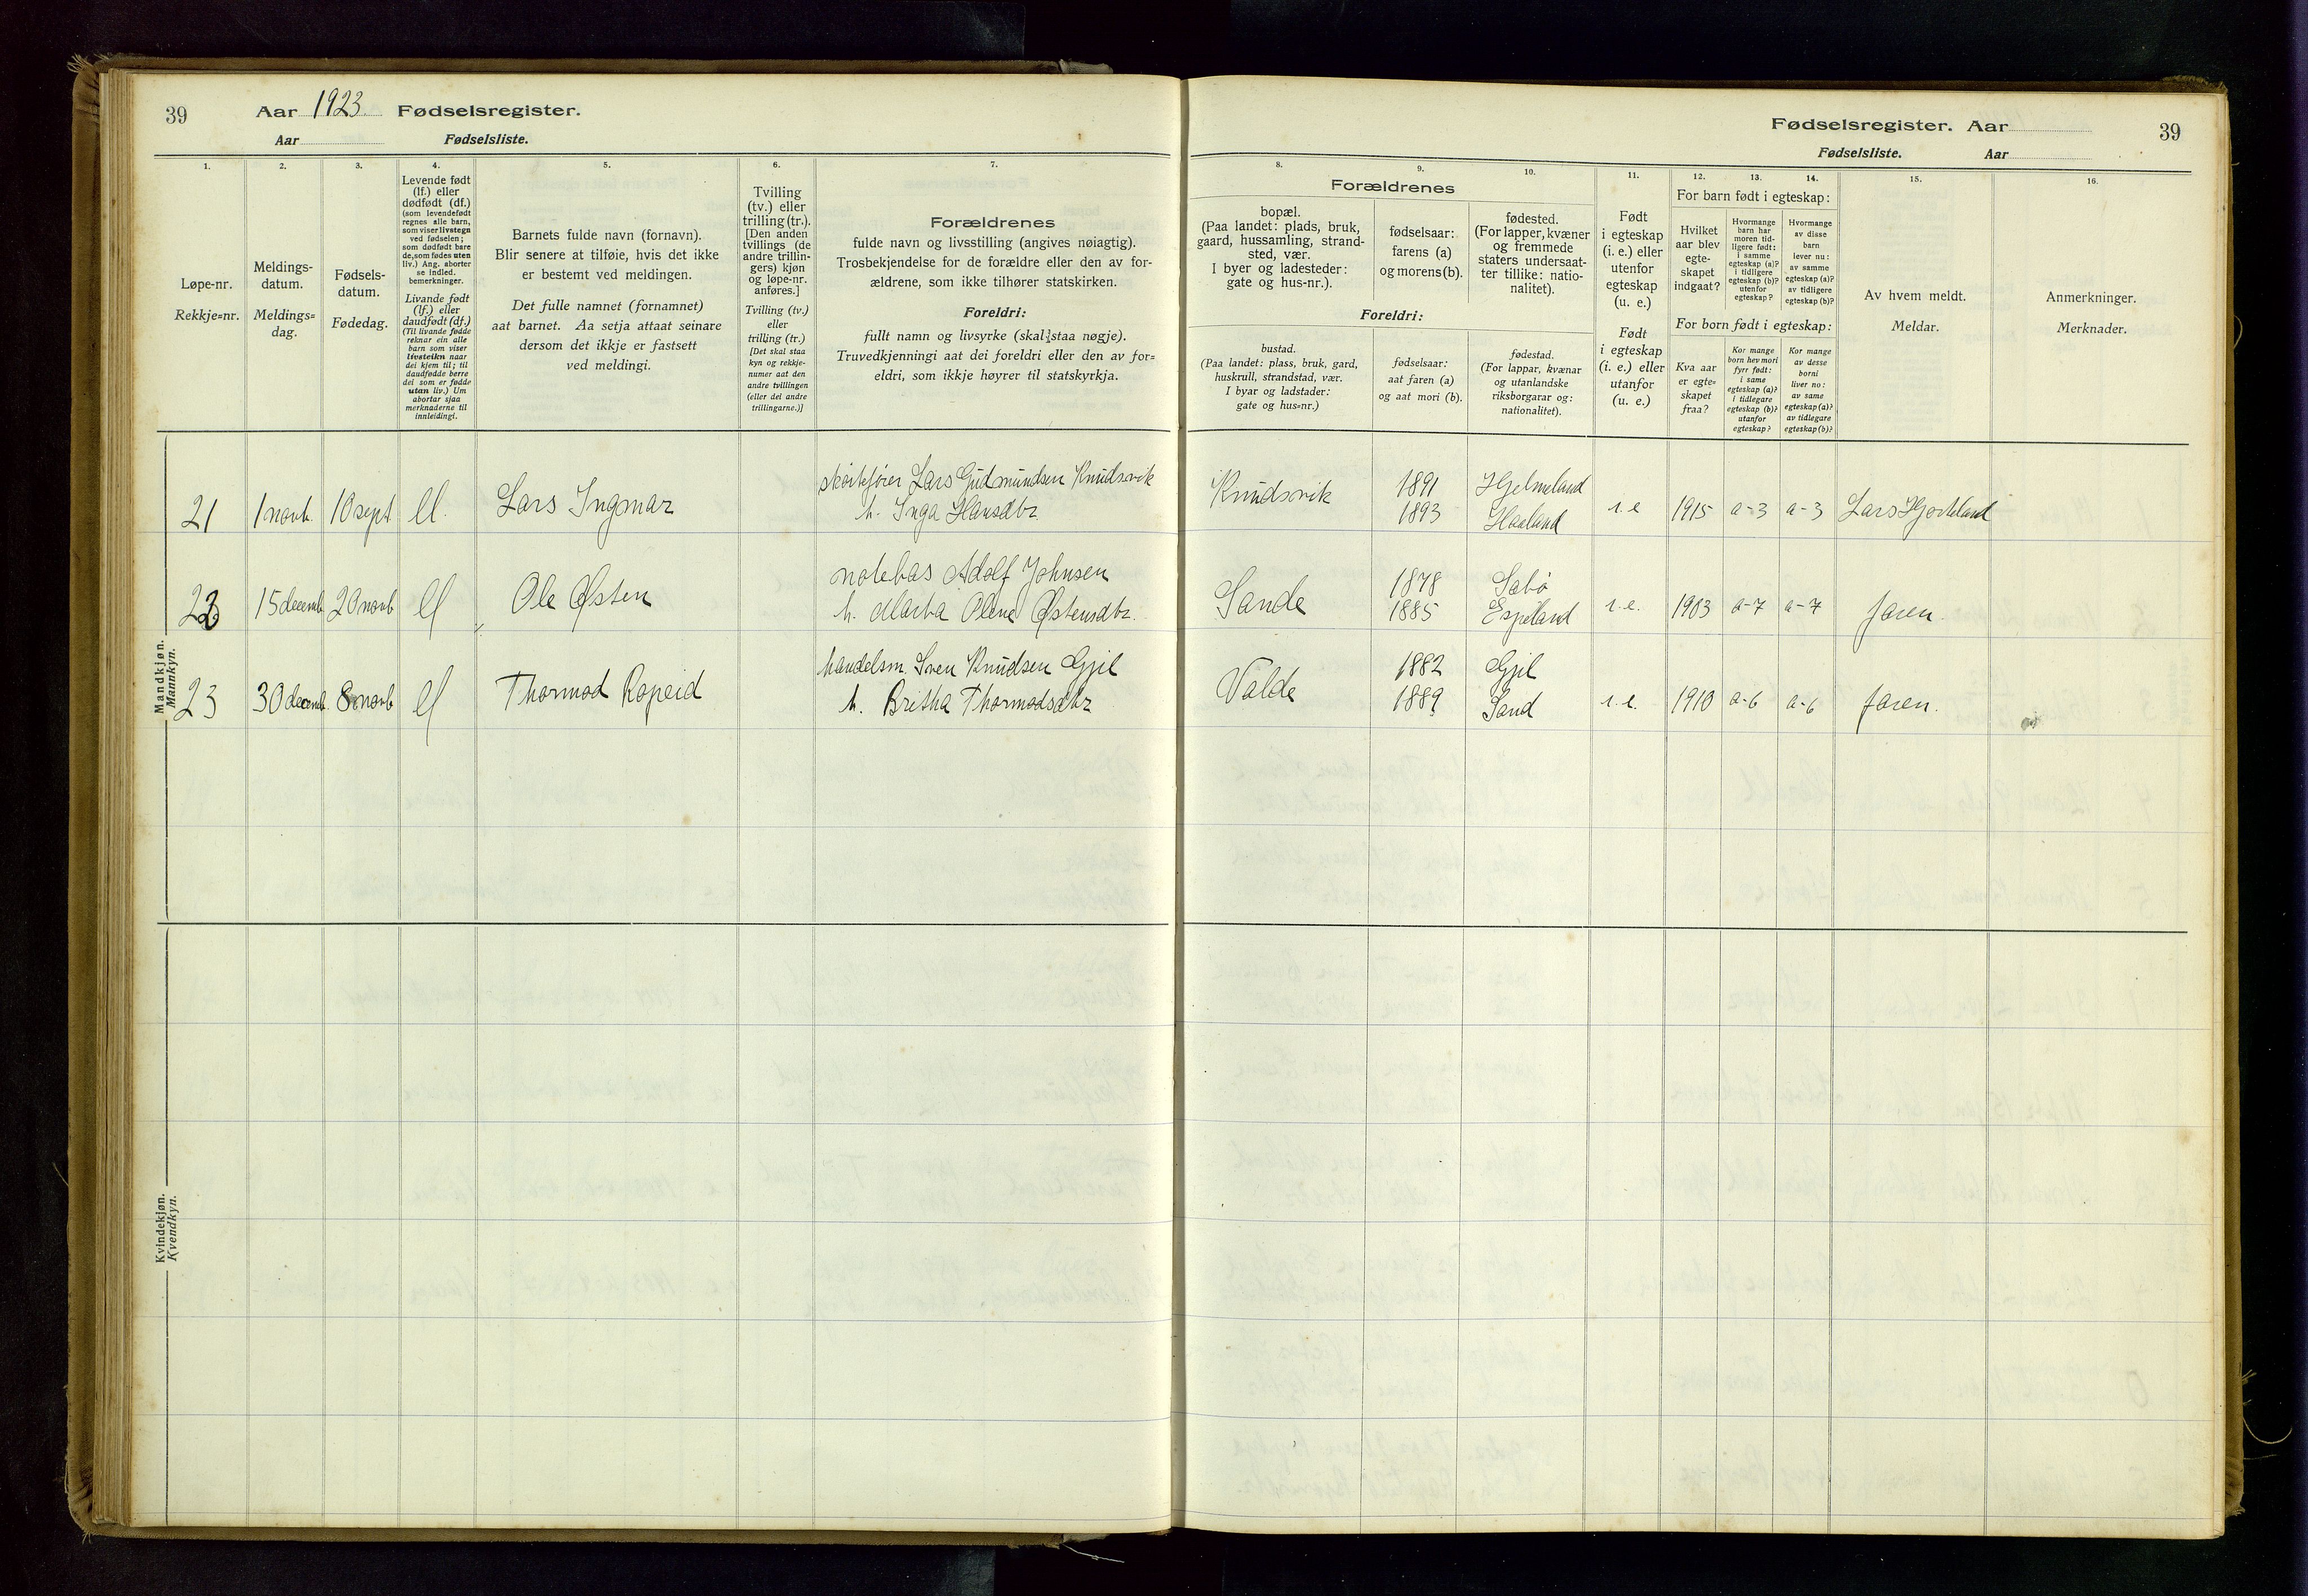 39
Aar 1923 Fødselsregister.
Aar Fødselsliste.
1.
Løpe-nr.
Rekkje=nr.
2.
Meldings-
datum.
Meldings=
dag.
3.
Fødsels-
datum.
Fødedag.
4.
Levende født
(lf.) eller
dødfødt (df.)
(som levendefødt
regnes alle barn,
som viser livstegn
ved fødselen;
som dødfødt bare
de, som fødes uten
liv.) Ang. aborter
se indled.
bemerkninger.
Livande født
(lf.) eller
daudfødt (df.)
(Til livande fødde
reknar ein alle
barn som viser
livsteikn naar
dei kjem til; til
daudfødde berre
dei som er fødde
utan liv.) Um
abortar sjaa
merknaderne til
innleidingi.
5.
Barnets fulde navn (fornavn).
Blir senere at tilføie, hvis det ikke
er bestemt ved meldingen.
Det fulle namnet (fornamnet)
aat barnet. Aa setja attaat seinare
dersom det ikkje er fastsett
ved meldingi.
6.
Tvilling
(tv.) eller
trilling (tr.).
[Den anden
tvillings (de
andre trillin-
gers) kjøn
og løpe-nr.
anføres.]
Tvilling (tv.)
eller
trilling (tr.)
[Det skal staa
kyn og rekkje-
numer aat den
andre tvillingen
(eller dei andre
trillingarne.)]
7.
Forældrenes
fulde navn og livsstilling (angives nøiagtig).
Trosbekjendelse for de forældre eller den av for-
ældrene, som ikke tilhører statskirken.
Foreldri:
fullt namn og livsyrke (skal staa nøgje).
Truvedkjenningi aat dei foreldri eller den av for=
eldri, som ikkje høyrer til statskyrkja.
Fødselsregister. Aar
39
Fødselsliste. Aar
8.
9.
10.
Forældrenes
bopæl.
(Paa landet: plads, bruk,
gaard, hussamling, strand-
sted, vær.
I byer og ladesteder:
gate og hus-nr.).
fødselsaar:
farens (a)
og morens (b).
fødested.
(For lapper, kvæner
og fremmede
staters undersaat-
ter tillike: natio-
nalitet).
Foreldri:
bustad.
(Paa landet: plass, bruk, gard,
huskrull, strandstad, vær.
I byar og ladstader:
gate og hus=nr.)
fødselsaar:
aat faren (a)
og aat mori (b).
fødestad.
(For lappar, kvænar
og utanlandske
riksborgarar og:
nationalitet).
11.
Født
i egteskap
(i. e.) eller
utenfor
egteskap
(u. e.)
Født
i egteskap
(i. e.) eller
utanfor
(u. e.)
12.
13.
14.
For barn født i egteskap:
Hvilket
aar blev
egte-
skapet
indgaat?
Hvormange
barn har
moren tid-
ligere født:
i samme
egteskap (a)?
i tidligere
egteskap (b)?
utenfor
egteskap?
Hvormange
av disse
barn
lever nu:
av samme
egteskap (a)?
av tidligere
egteskap (b)?
For born født i egteskap:
Kva aar
er egte=
skapet
fraa?
Kor mange
born hev mori
fyrr født:
i same
egteskap (a)?
i tidlegare
egteskap (b)?
utanfor
egteskap?
Kor mange
av desse
borni
liver no:
av same
egteskap (a)?
av tidlegare
egteskap (b)?
15.
Av hvem meldt.
Meldar.
16.
Anmerkninger.
Merknader.
Mandkjøn.
Mannkyn.
21 1 novb. 10 sept lf. Lars Ingmar skøitefører Lars Gudmundsen Knudsvik
h. Inga Hansdtr. Knudsvik 1891 Hjelmeland
1893 Haaland i. e 1915 a-3 a-3
22 15 decemb. 20 novb lf Ole Østen notebas Adolf Johnsen
h. Marta Olene Østensdtr. Sande 1878 Sabø
1885 Espeland i. e. 1903 a-7 a-7 faren.
23 30 decemb. 8 novb lf Thormod Ropeid handelsm. Sven Knudsen Gjil
h. Britha Thormodsdtr Valde 1882 Gjil
1889 Sand i. e. 1910 a-6 a-6 faren.
Kvindekjøn.
Kvendkyn.